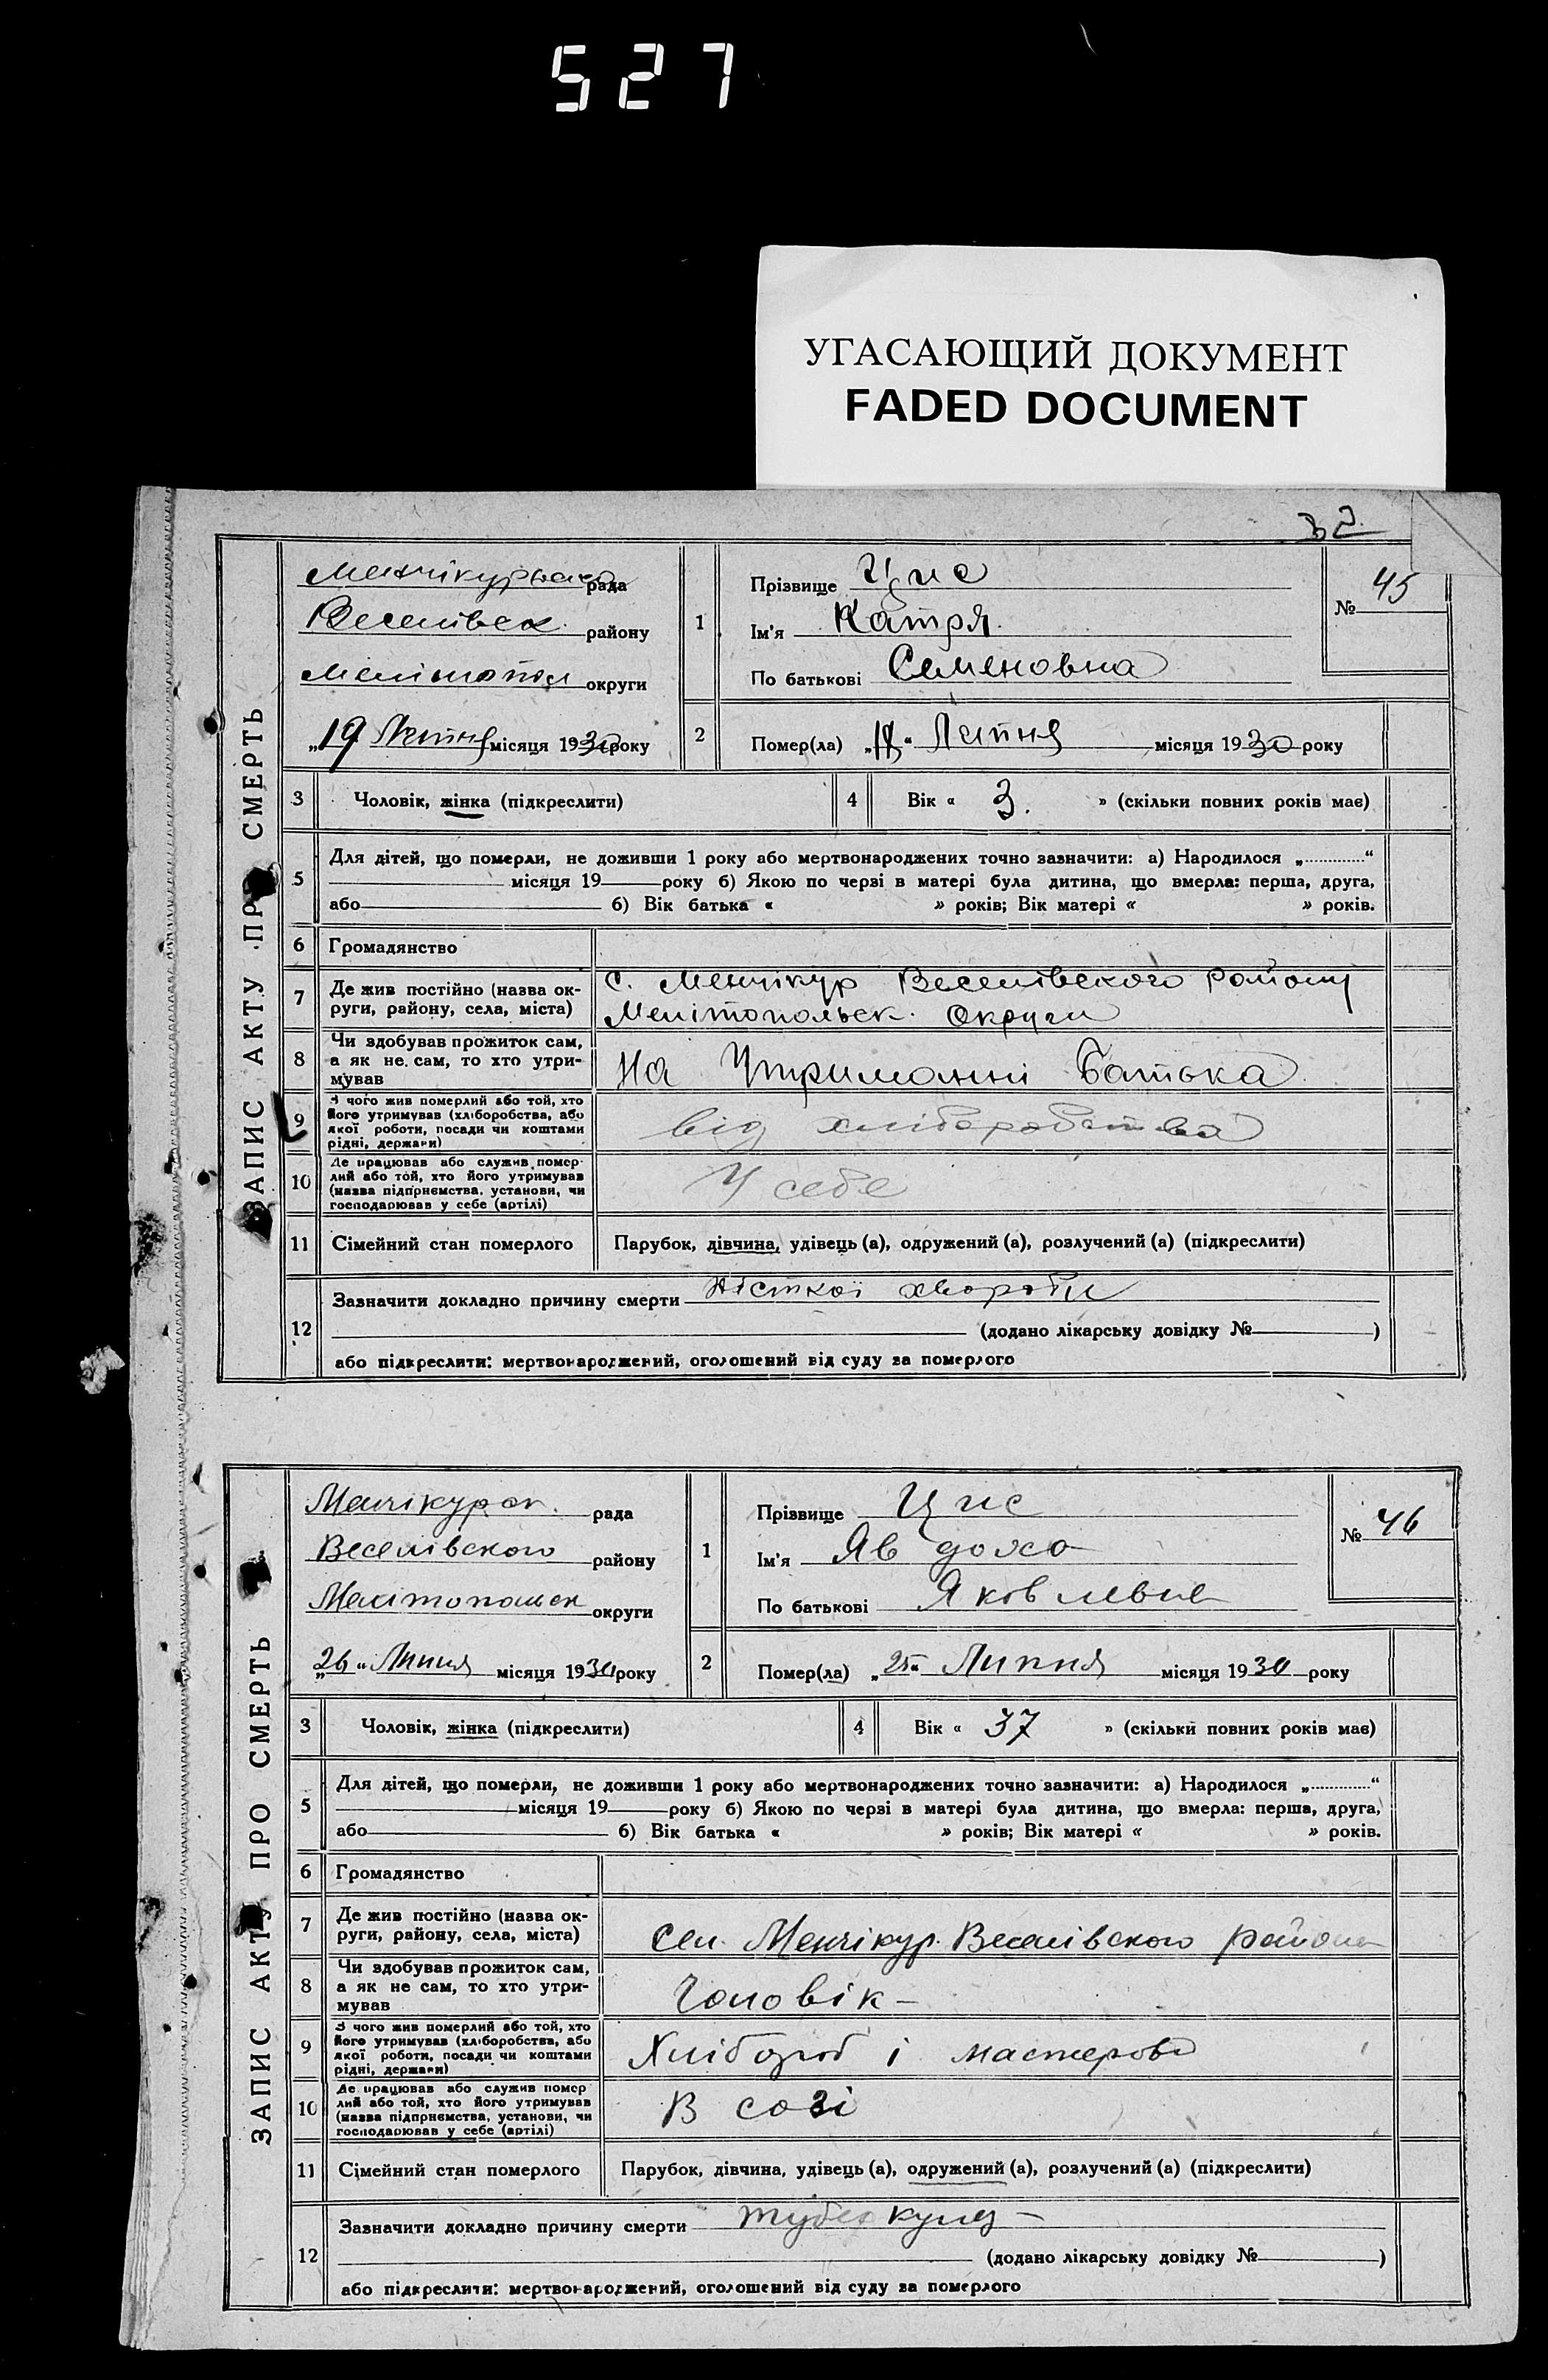 527
УГАСАЮЩИЙ ДОКУМЕНТ
FADED DOCUMENT
32
ЗАПИС АКТУ ПРО СМЕРТЬ
Менчікурська рада
Веселівск. району
Мелітопол округи
„19 Липня місяця 1930 року
1
Прізвище Цис
Ім'я Катря.
По батькові Семеновна
№ 45
2
Помер(ла) „19“ Липня місяця 1930 року
3 Чоловік, жінка (підкреслити)
4 Вік « 3. » (скільки повних років має)
5
Для дітей, що померли, не доживши 1 року або мертвонароджених точно зазначити: а) Народилося „............“
місяця 19 року б) Якою по черзі в матері була дитина, що вмерла: перша, друга,
або б) Вік батька « » років; Вік матері « » років.
6 Громадянство
7
Де жив постійно (назва ок-
руги, району, села, міста)
с. Менчікур Веселівского району
Мелітопольск. Округи
8
Чи здобував прожиток сам,
а як не сам, то хто утри-
мував
На Утриманні Батька
9
З чого жив померлий або той, хто
його утримував (хліборобства, або
якої роботи, посади чи коштами
рідні, держави)
від хлібаробства
10
Де працював або служив помер-
лий або той, хто його утримував
(назва підпрнємства, установи, чи
господарював у себе (артілі)
У себе
11 Сімейний стан померлого
Парубок, дівчина, удівець (а), одружений (а), розлучений (а) (підкреслити)
12
Зазначити докладно причину смерти хвороби
(додано лікарську довідку № )
або підкреслити: мертвонароджений, оголошений від суду за померлого
ЗАПИС АКТУ ПРО СМЕРТЬ
Менчікурск. рада
Веселівского району
Мелітопольск округи
„26“ Липня місяця 1930 року
1
Прізвище Цис
Ім'я Явдоха
По батькові Яковлевна
№ 46
2
Помер(ла) „25“ Липня місяця 1930 року
3 Чоловік, жінка (підкреслити)
4 Вік « 37 » (скільки повних років має)
5
Для дітей, що померли, не доживши 1 року або мертвонароджених точно зазначити: а) Народилося „............“
місяця 19 року б) Якою по черзі в матері була дитина, що вмерла: перша, друга,
або б) Вік батька « » років; Вік матері « » років.
6 Громадянство
7
Де жив постійно (назва ок-
руги, району, села, міста)
Сел. Менчікур. Веселівского району
8
Чи здобував прожиток сам,
а як не сам, то хто утри-
мував
Чоловік –
9
З чого жив померлий або той, хто
його утримував (хліборобства, або
якої роботи, посади чи коштами
рідні, держави)
Хлібороб і мастерова
10
Де працював або служив помер
лий або той, хто його утримував
(назва підпрнємства, установи, чи
господарював у себе (артілі)
В созі
11 Сімейний стан померлого
Парубок, дівчина, удівець (а), одружений (а), розлучений (а) (підкреслити)
12
Зазначити докладно причину смерти туберкульз –
(додано лікарську довідку № )
або підкреслити: мертвонароджений, оголошений від суду за померлого